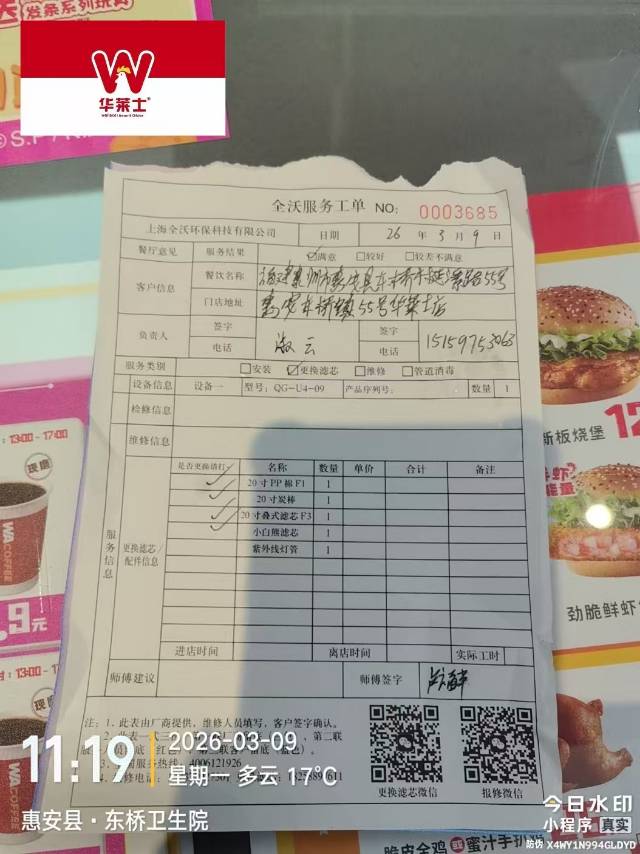 发条系列玩具
华莱士
全沃服务工单 NO: 0003685
上海全沃环保科技有限公司 日期 26 年 3 月 9 日
餐厅意见 服务结果 ☑满意 □较好 □较差不满意
客户信息 餐饮名称
门店地址 55号华莱士店
负责人 签字 签字
电话 电话 15159753063
服务类别 □安装 ☑更换滤芯 □维修 □管道消毒
设备信息 设备一 型号: QG-U4-09 产品序列号: 数量 1
检修信息
维修信息
服务信息
更换滤芯/配件信息
是否更换请打✓ 名称 数量 单价 合计 备注
✓ 20寸PP棉F1 1
✓ 20寸炭棒 1
✓ 20寸叠式滤芯F3 1
✓ 小白熊滤芯 1
紫外线灯管 1
进店时间 离店时间 实际工时
师傅建议 师傅签字
注: 1. 此表由厂商提供, 维修人员填写, 客户签字确认。
4006121926
更换滤芯微信 报修微信
11:19
2026-03-09
星期一 多云 17℃
惠安县·东桥卫生院
今日水印
小程序 真实
防伪 X4WY1N994GLDYD
13:00-17:00
现磨
WA COFFEE
.9元
13:00
现
新板烧堡
12
劲脆鲜虾
脆皮全鸡 或 蜜汁手扒鸡